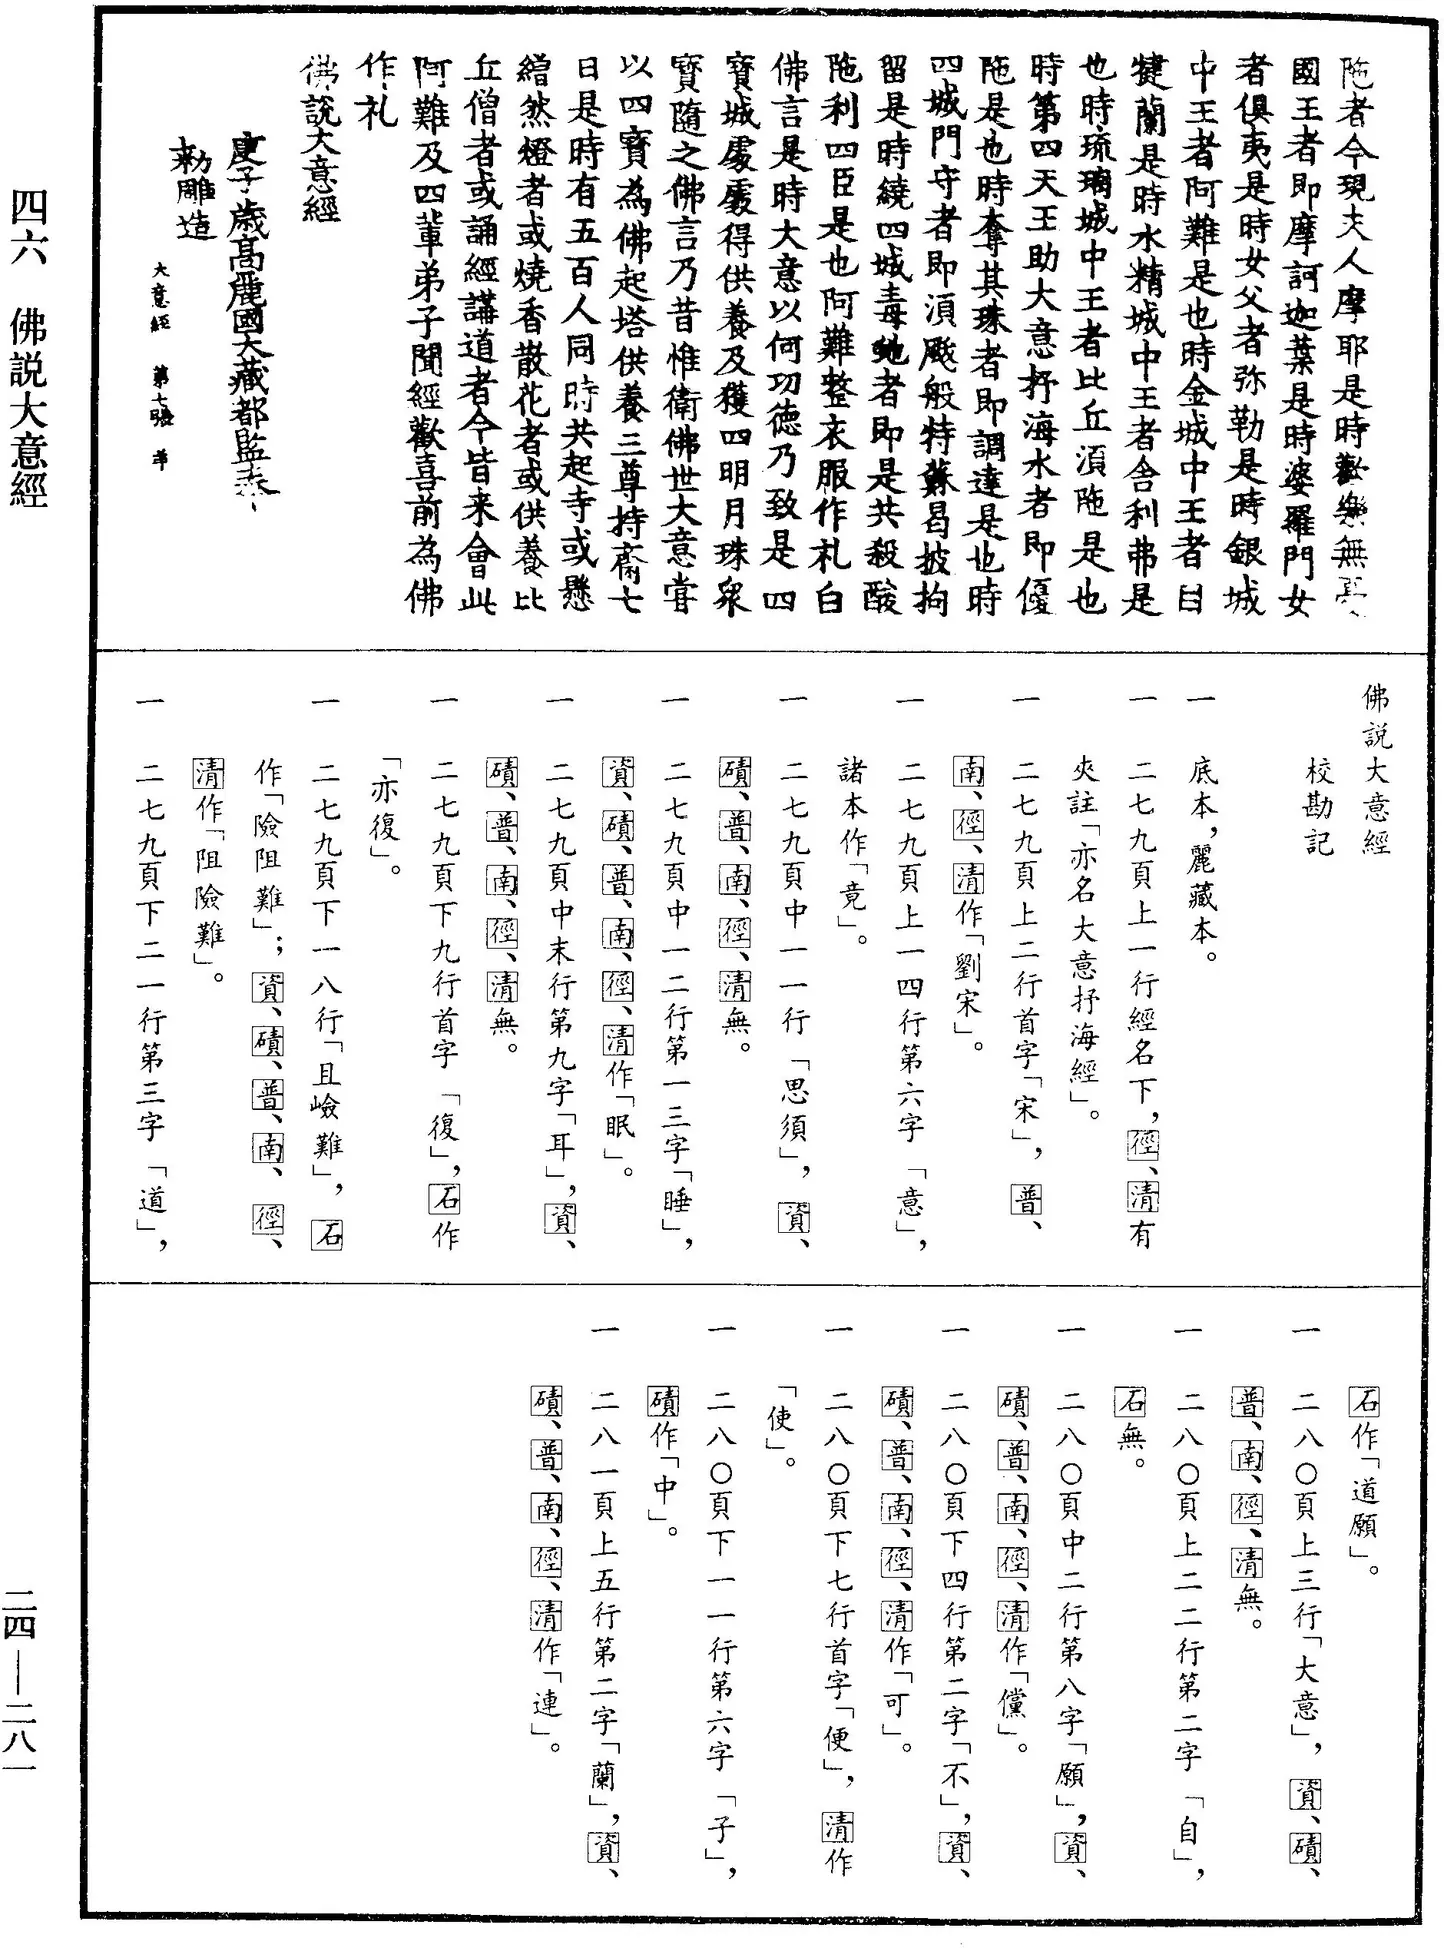 陁者今現夫人摩耶是時歡樂無
國王者即摩訶迦葉是時婆羅門女
者俱夷是時女父者弥勒是時銀城
中王者阿難是也時金城中王者目
揵蘭是時水精城中王者舍利弗是
也時琉璃城中王者比丘湏陁是也
時第四天王助大意抒海水者即優
陁是也時奪其珠者即調達是也時
四城門守者即湏颰般特蘇曷披拘
留是時繞四城毒虵者即是共殺酸
陁利四臣是也阿難整衣服作礼白
佛言是時大意以何功德乃致是四
寶城處處得供養及獲四明月珠眾
寶隨之佛言乃昔惟衛佛世大意甞
以四寶為佛起塔供養三尊持齋七
日是時有五百人同時共起寺或懸
繒然燈者或燒香散花者或供養比
丘僧者或誦經講道者今皆来會此
阿難及四輩弟子聞經歡喜前為佛
作礼
佛說大意經
庚子歲高麗國大藏都監奉
勑雕造
大意經 第七張 草
佛說大意經
校勘記
一 底本，麗藏本。
一 二七九頁上一行經名下，徑、清有
夾註「亦名大意抒海經」。
一 二七九頁上二行首字「宋」，普、
南、徑、清作「劉宋」。
一 二七九頁上一四行第六字「意」，
諸本作「竟」。
一 二七九頁中一一行「思須」，資、
磧、普、南、徑、清無。
一 二七九頁中一二行第一三字「睡」，
資、磧、普、南、徑、清作「眠」。
一 二七九頁中末行第九字「耳」，資、
磧、普、南、徑、清無。
一 二七九頁下九行首字「復」，石作
「亦復」。
一 二七九頁下一八行「且嶮難」，石
作「險阻難」；資、磧、普、南、徑、
清作「阻險難」。
一 二七九頁下二一行第三字「道」，
石作「道願」。
一 二八〇頁上三行「大意」，資、磧、
普、南、徑、清無。
一 二八〇頁上二二行第二字「自」，
石無。
一 二八〇頁中二行第八字「願」，資、
磧、普、南、徑、清作「儻」。
一 二八〇頁下四行第二字「不」，資、
磧、普、南、徑、清作「可」。
一 二八〇頁下七行首字「便」，清作
「使」。
一 二八〇頁下一一行第六字「子」，
磧作「中」。
一 二八一頁上五行第二字「蘭」，資、
磧、普、南、徑、清作「連」。
四六 佛說大意經
二四—二八一